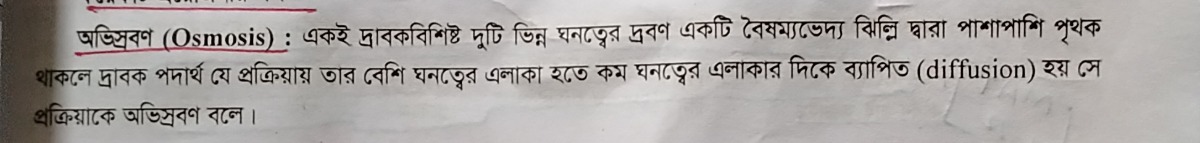 অভিস্রবণ (Osmosis) : একই দ্রাবকবিশিষ্ট দুটি ভিন্ন ঘনত্বের দ্রবণ একটি বৈষম্যভেদ্য ঝিল্লি দ্বারা পাশাপাশি পৃথক
থাকলে দ্রাবক পদার্থ যে প্রক্রিয়ায় তার বেশি ঘনত্বের এলাকা হতে কম ঘনত্বের এলাকার দিকে ব্যাপিত (diffusion) হয় সে
প্রক্রিয়াকে অভিস্রবণ বলে।